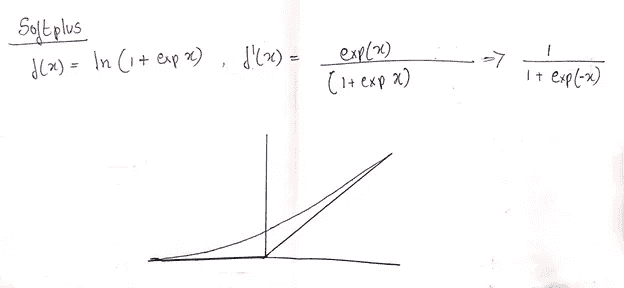 Softplus
f(x) = ln (1 + exp x) , f'(x) = exp(x) / (1 + exp x) => 1 / 1 + exp(-x)